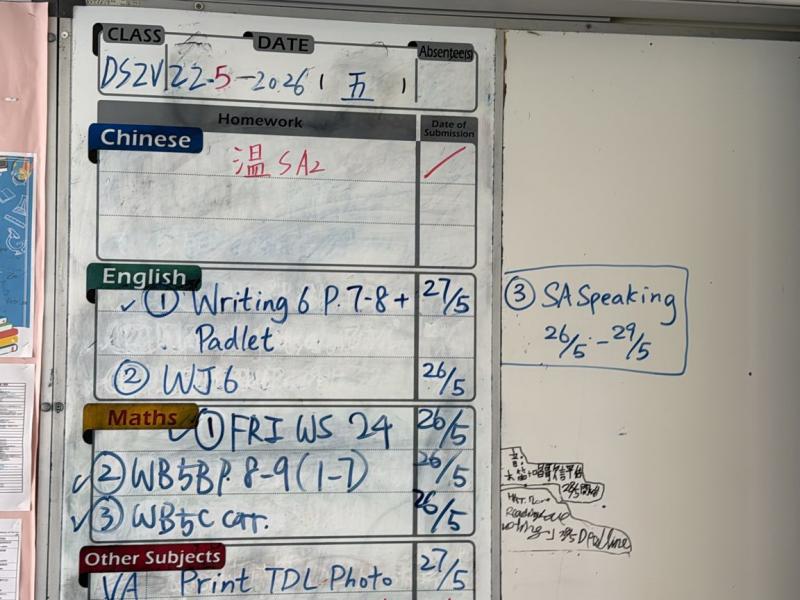 CLASS DATE Absentee(s)
DS2V 22-5-2026 ( 五 )
Homework Date of Submission
Chinese
温 SA2 /
English
✓ ① Writing 6 P.7-8 + 27/5
Padlet
② WJ6 26/5
③ SA Speaking
26/5 - 29/5
Maths
✓ ① FRI WS 24 26/5
✓ ② WB5B P. 8-9 (1-7) 26/5
✓ ③ WB5C corr. 26/5
Other Subjects
VA Print TDL Photo 27/5
Deadline